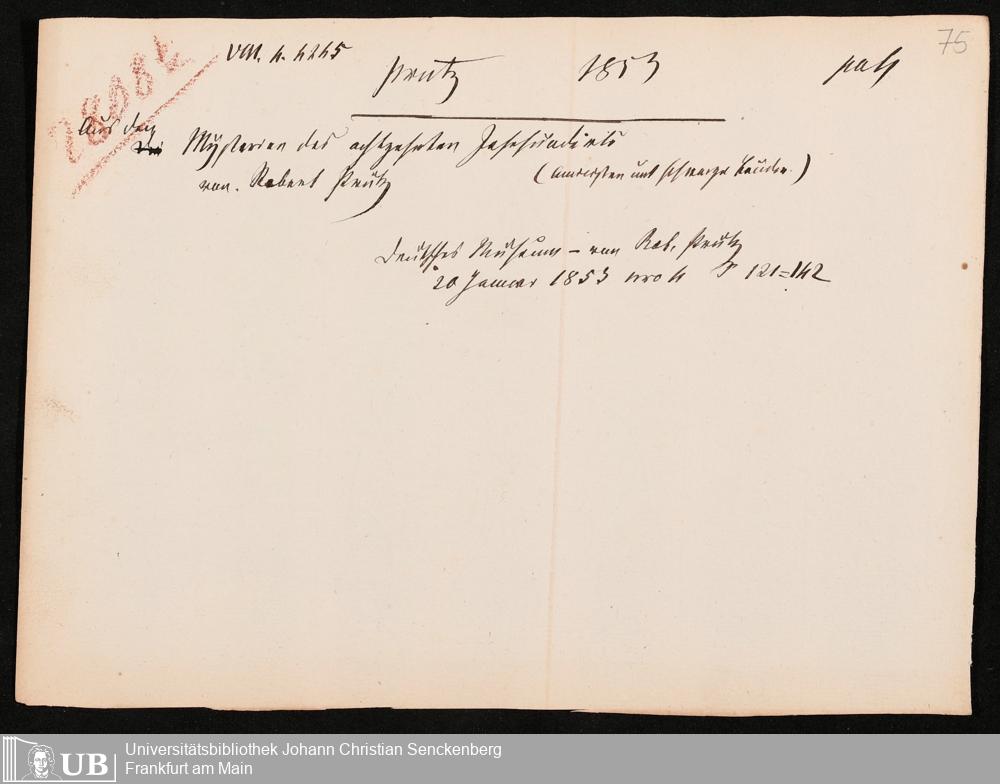 75
VM. 4. 4245
Prutz 1853
Aus den
Mysterien des achtzehnten Jahrhunderts
von Robert Prutz
( und schwarze )
Deutsches Museum – von Rob. Prutz
20 Januar 1853 nro 4 S 121=142
UB
Universitätsbibliothek Johann Christian Senckenberg
Frankfurt am Main